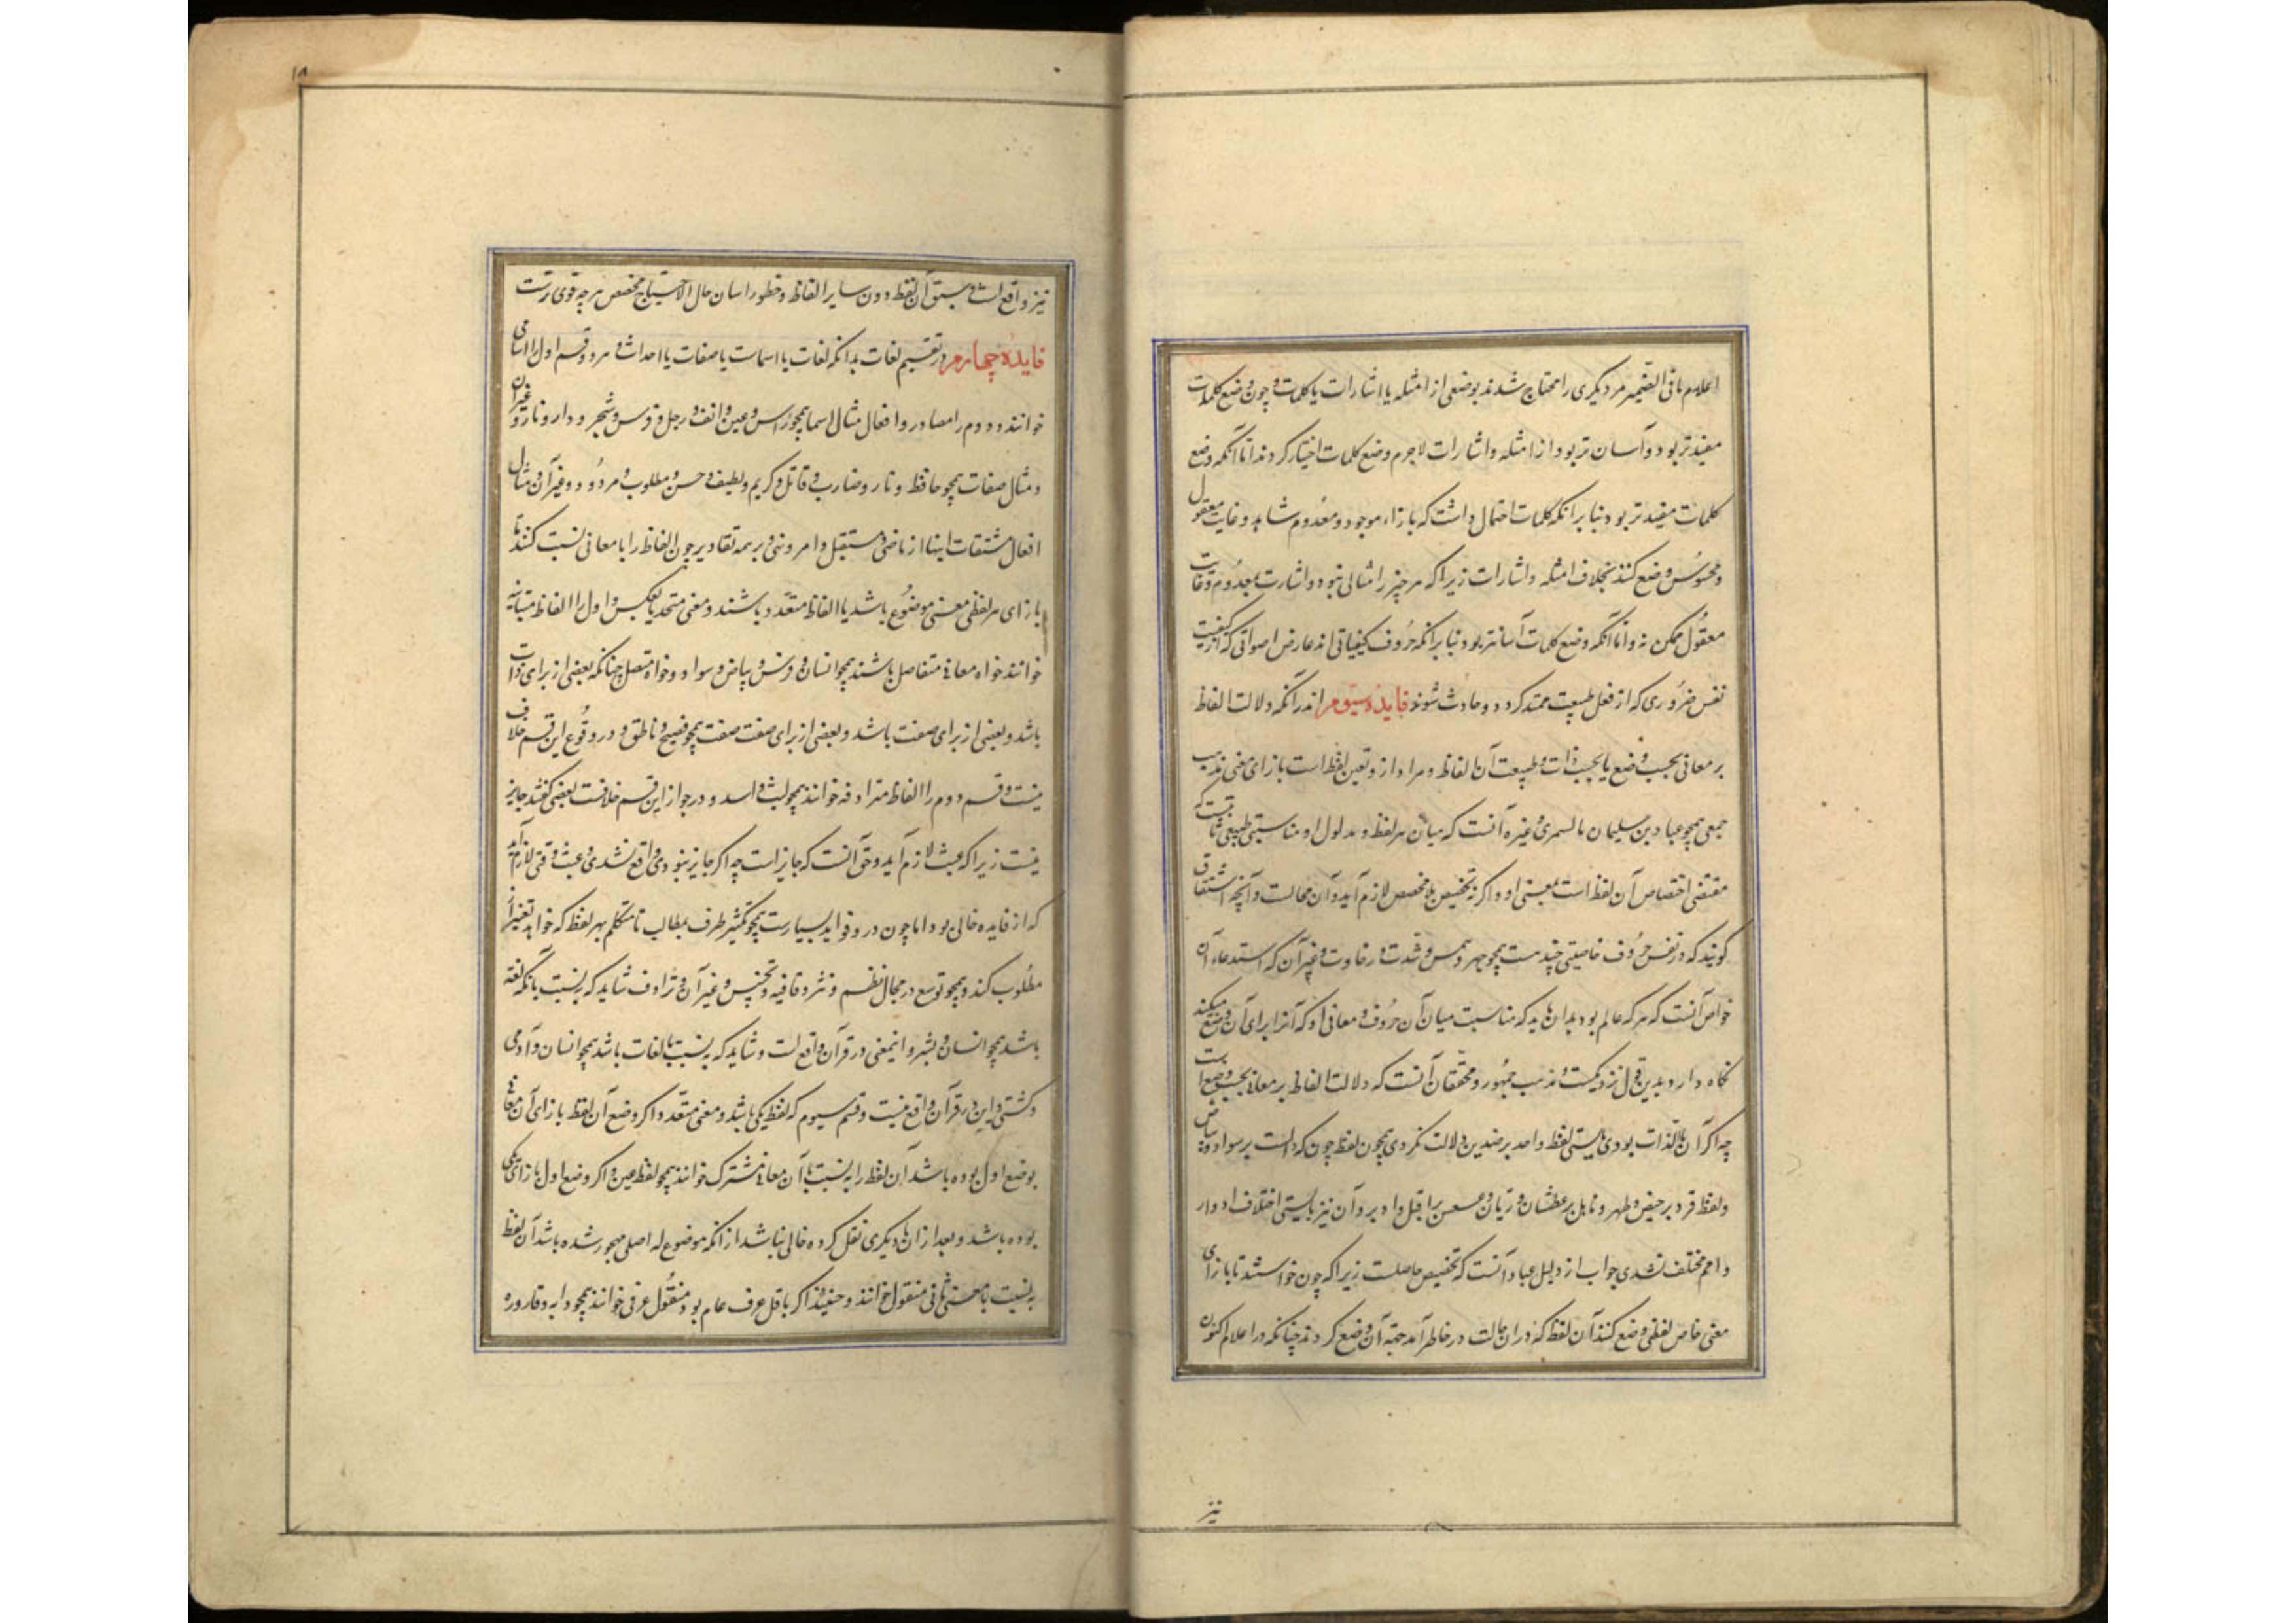 اعلام ما فی الضمیر مر دیکری را محتاج شدند بوضعی از امثله یا اشارات یا کلمات و چون وضع کلمات
مفیدتر بود و آسان تر بود از امثله و اشارات لاجرم وضع کلمات اختیار کردند اما آنکه وضع
کلمات مفیدتر بود بنا بر انکه کلمات احتمال داشت که بازاء موجود و معدوم شاهد و غایب معقول
و محسوس وضع کنند بخلاف امثله و اشارات زیرا که هر چیز را مثالی نبود و اشارت بمعدوم و غایب
معقول ممکن نه و اما آنکه وضع کلمات آسانتر بود بنا بر انکه حروف کیفیاتی اند عارض اصواتی که از کیفیت
نفس ضروری که از فعل طبیعت ممتد کردد و حادث شوند فایده سیوم اندر آنکه دلالت الفاظ
بر معانی بحسب وضع یا بحسب ذات و طبیعت آن الفاظ و مراد از وتعین لفظ است بازای معنی مذهب
جمعی همچو عباد بن سلیمان مالسمری و غیره آنست که میان هر لفظ و مدلول او مناسبتی طبیعی ثابتست که
مقتضی اختصاص آن لفظ است بمعنی او و اکر نه تخصیص بلا مخصص لازم آید و آن محالست و آنچه اشتقاق
کویند که در نفس حروف خاصیتی چند هست همچو جهر و همس و شدت و رخاوت و غیر آن که استدعاء آن
خواص آنست که هر که عالم بود بدان باید که مناسبت میان آن حروف و معانی او که آنرا برای آن وضع میکند
نکاه دارد و بدین قول نزدیکست و مذهب جمهور و محققان آنست که دلالت الفاظ بر معانی بحسب وضع است
چه اکر آن بالذات بودی بایستی لفظ واحد بر ضدین دلالت نکردی همچون لفظ جون که دالست بر سواد و بیاض
و لفظ قرء بر حیض و طهر و ناهل بر عطشان و ریان و عسعس بر اقبل و ادبر و آن نیز بایستی اختلاف ادوار
و امم مختلف نشدی جواب از دلیل عباد آنست که تخصیص حاصلست زیرا که چون خواستند تا بازای
معنی خاص لفظی وضع کنند آن لفظ که دران حالت در خاطر آمد جهة آن وضع کردند چنانکه در اعلام اکنون
نیز
۱۸
نیز واقع است و سبق آن لفظ دون سایر الفاظ و خطور راسان حال الاحتیاج مخصص هر چه قوی ترست
فایده چهارم در تقسیم لغات بدانکه لغات یا اسمات یا صفات یا احداث و هر دو قسم اول را اسامی
خوانند و دوم را مصادر و افعال مثال اسما همچو راس و عین و انف و رجل و فرس و شجر و دار و نار و غیر آن
و مثال صفات همچو حافظ و نار و ضارب و قاتل و کریم و لطیف و حسن و مطلوب و مردود و غیر آن و مثال
افعال مشتقات اینها از ماضی و مستقبل و امر و نهی و بر همه تقادیر چون الفاظ را با معانی نسبت کنند تا
بازای هر لفظی معنی موضوع باشد یا الفاظ متعدد باشند و معنی متحد یا بعکس و اول را الفاظ متباینه
خوانند خواه معانی متفاصل باشند همچو انسان و فرس و بیاض و سواد و خواه متصل چنانکه بعضی از برای ذات
باشد و بعضی از برای صفت باشد و بعضی از برای صفت صفت همچو فصیح و ناطق و در وقوع این قسم خلاف
نیست و قسم دوم را الفاظ مترادفه خوانند همچو لیث و اسد و در جواز این قسم خلافست بعضی کفتند جایز
نیست زیرا که عبث لازم آید و حق آنست که جایز است چه اکر جایز نبودی واقع نشدی و عبث وقتی لازم آید
که از فایده خالی بود اما چون درو فواید بسیارست همچو تکثیر طرف بمطالب تا متکلم بهر لفظ که خواهد تعبیر از
مطلوب کند و همچو توسع در مجال نظم و نثر و قافیه و تجنیس و غیر آن و ترادف شاید که به نسبت بانکه لغة
باشد همچو انسان و بشر و اینمعنی در قرآن واقع است و شاید که به نسبت بالغات باشد همچو انسان و آدمی
و کشتی و این در قرآن واقع نیست و قسم سیوم که لفظ یکی باشد و معنی متعدد اکر وضع آن لفظ بازای آن معانی
بوضع اول بوده باشد آن لفظ را به نسبت با آن معانی مشترک خوانند همچو لفظ عین و اکر وضع اول بازای یکی
بوده باشد و بعد از ان بدیکری نقل کرده خالی نباشد از انکه موضوع له اصلی مهجور شده باشد آن لفظ
به نسبت با معنی ثانی منقول خوانند و حینئذ اکر ناقل عرف عام بود منقول عرفی خوانند همچو دابه و قاروره